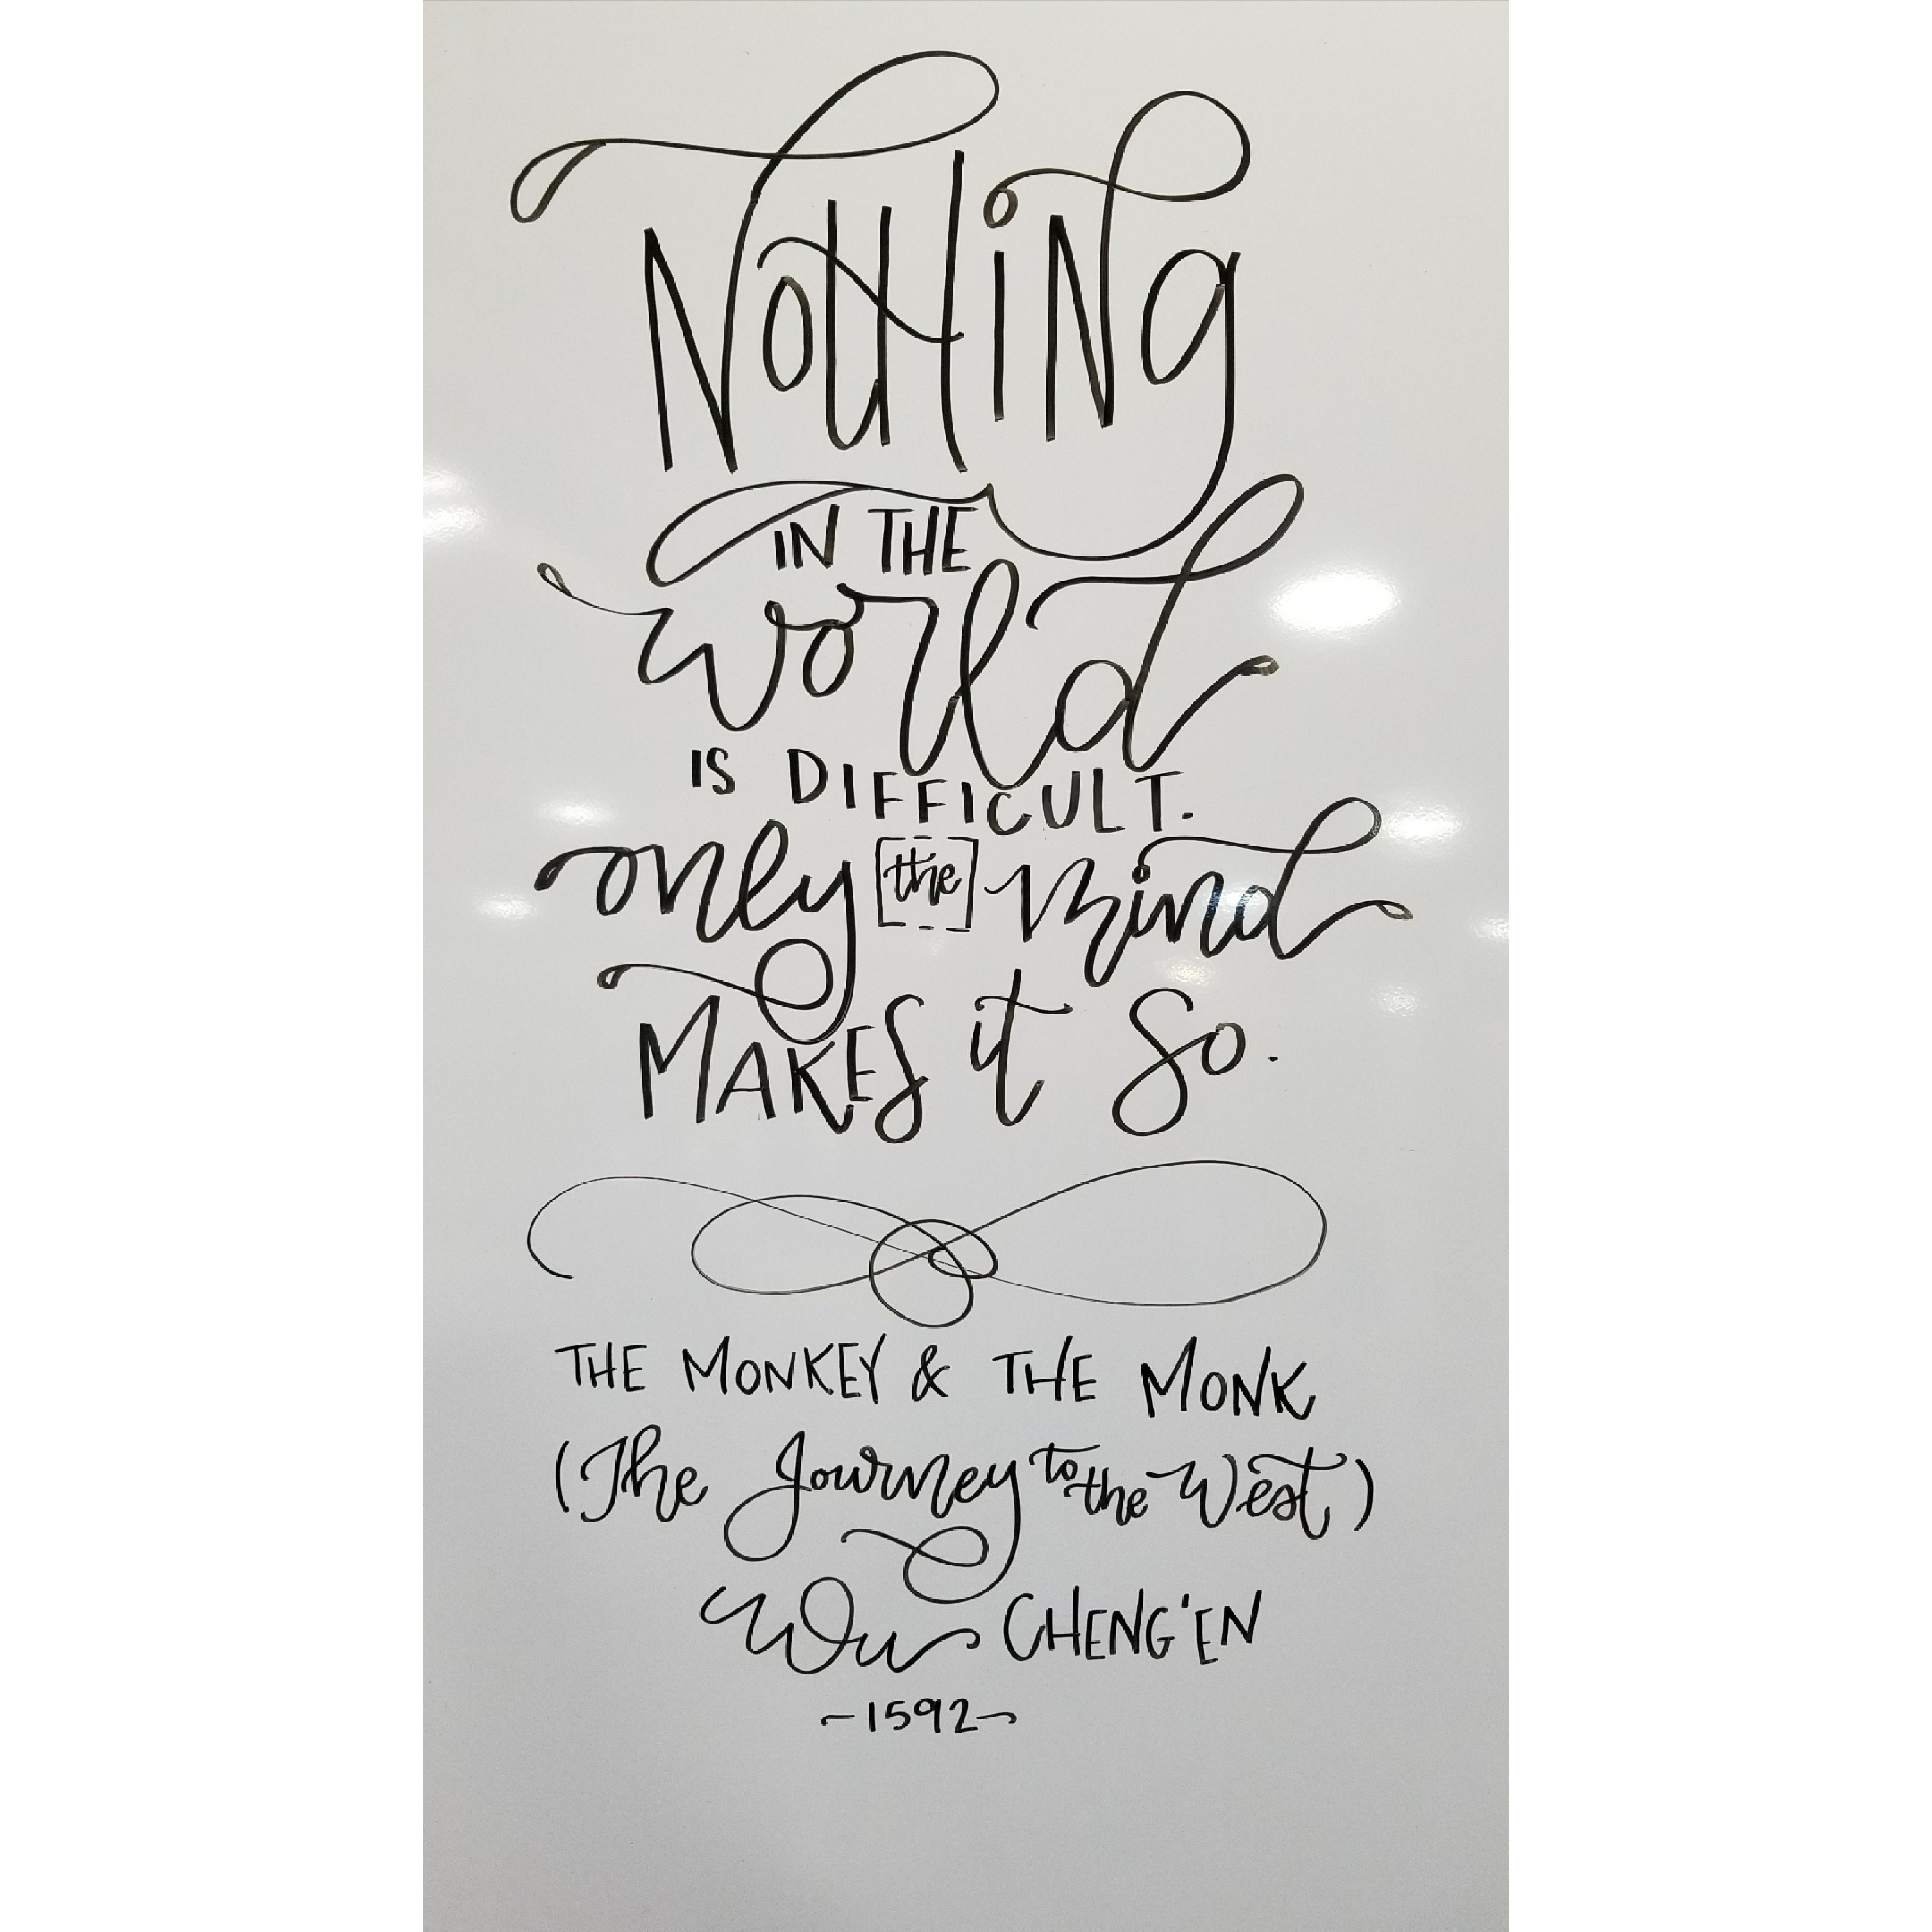 NotHiNg
IN THE
world
IS DIFFICULT.
only [the] mind
MAKES it So.
THE MONKEY & THE MONK
(The Journey to the West)
Wu CHENG'EN
~1592~